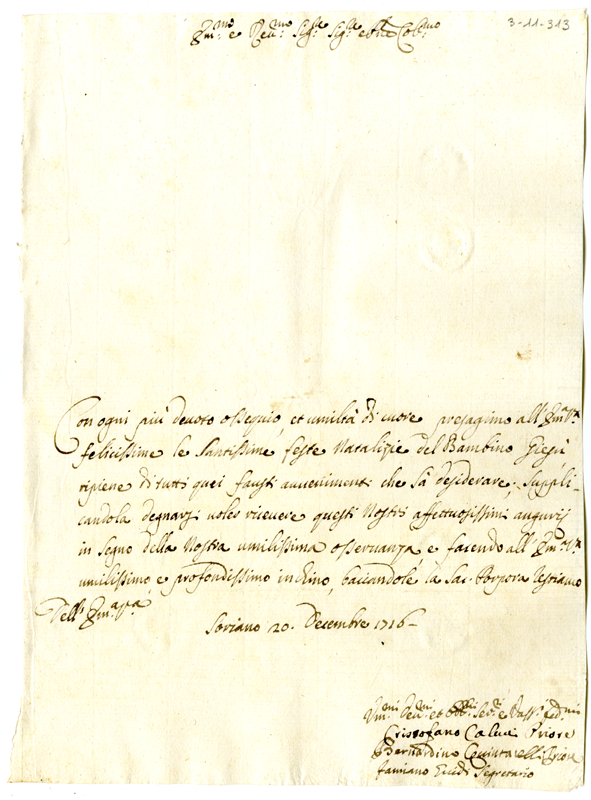 3-11-313
Em:mo e Reu:mo Sig:re Sig:re
Con ogni più deuoto ossequio, et umiltà di cuore presagimo all'Em:a V:ra
felicissime le Santissime feste Natalizie del Bambino Giesù
ripiene di tutti quei fausti auuenimenti che sà desiderare, suppli-
candola degnarsi uoler riceuere questi Nostri affettuosissimi augurij
in segno della Nostra umilissima osseruanza, e facendo all'Em:a V:ra
umilissimo, e profondissimo inchino, baciandole la Sac: Porpora restiamo
Dell' Em:a V:ra
Soriano 20. Decembre 1716-
Um:mi Deu:mi et Obb:mi Ser:ri e Vass:i
Cristofano Priore
Bernardino Quintarelli Priore
famiano Segretario